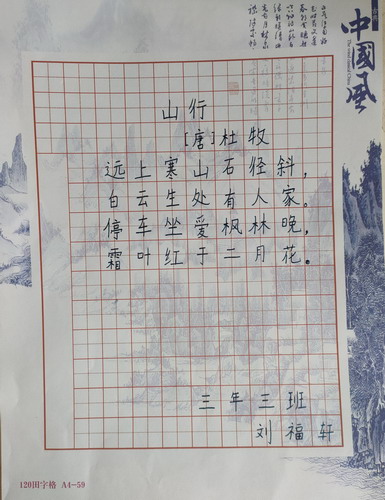 中國风
山行
[唐]杜牧
远上寒山石径斜，
白云生处有人家。
停车坐爱枫林晚，
霜叶红于二月花。
三年三班
刘福轩
120田字格 A4-59